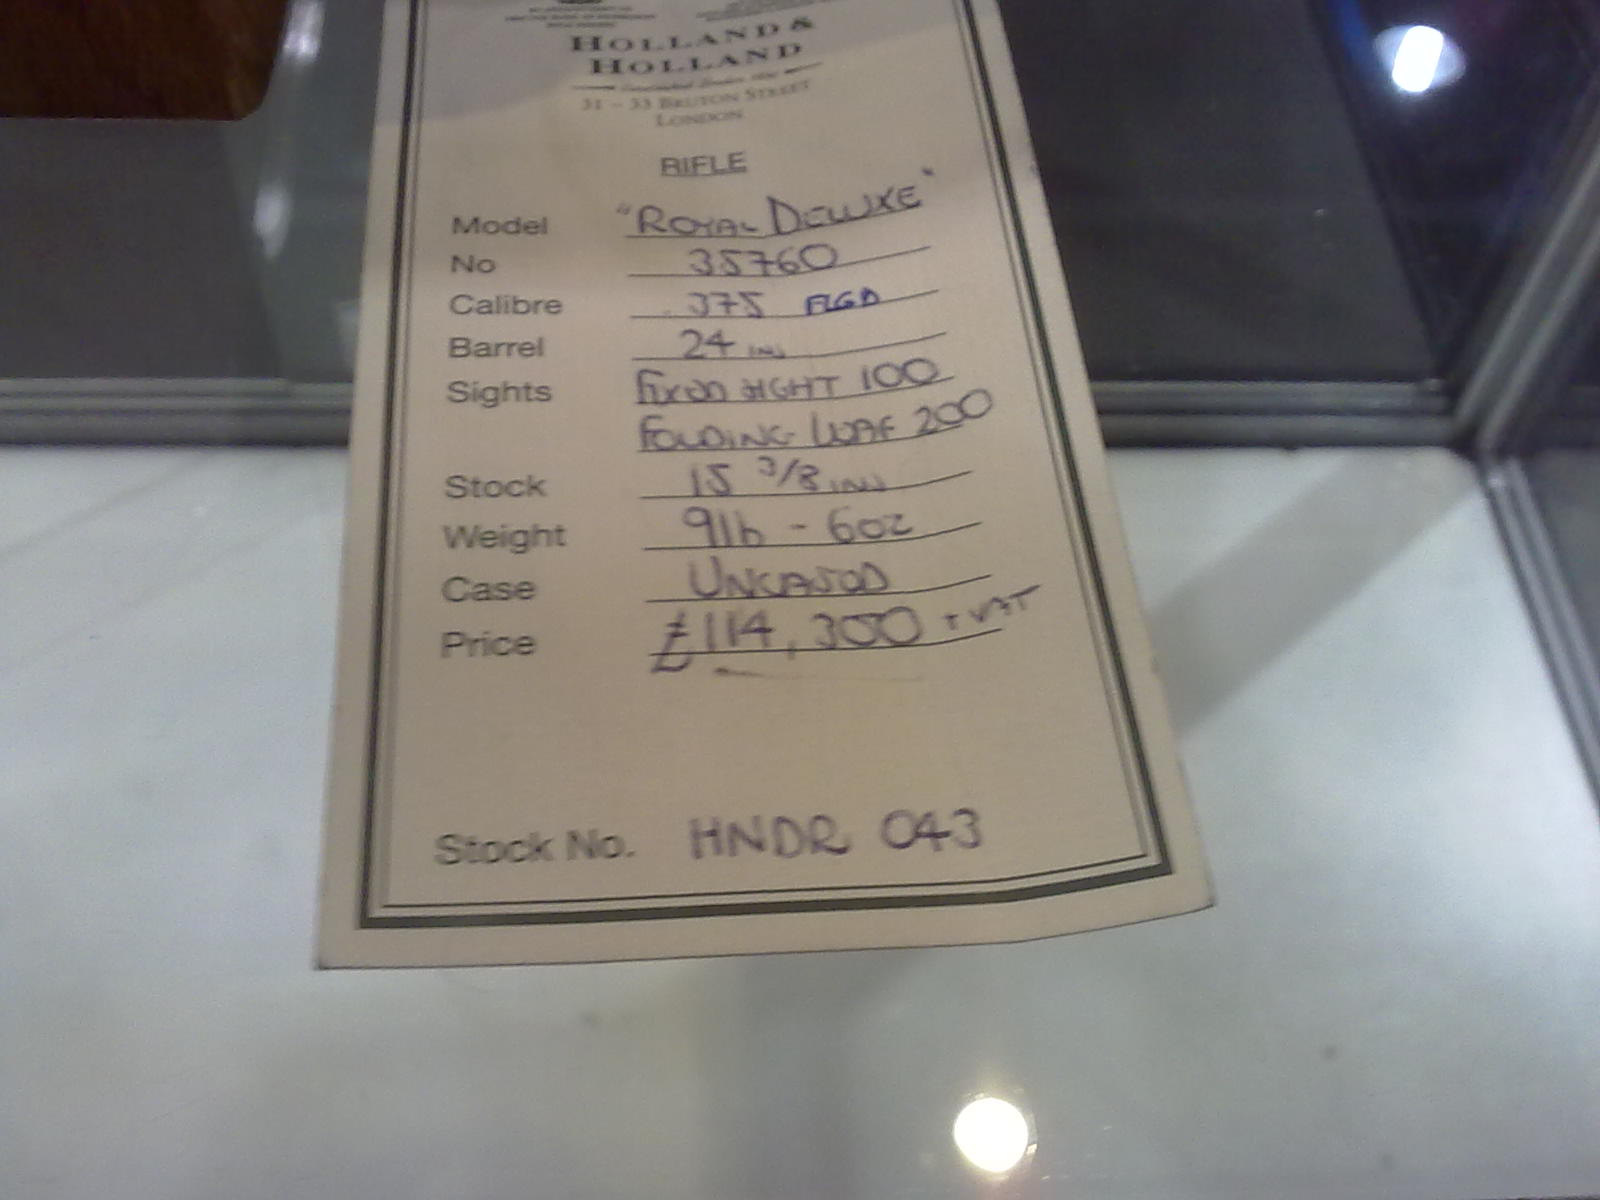 HOLLAND &
HOLLAND
31 - 33 BRUTON STREET
LONDON
RIFLE
Model "ROYAL DELUXE"
No 35760
Calibre .375 FLGD
Barrel 24 INS
Sights FIXED SIGHT 100
FOLDING LEAF 200
Stock 15 3/8 INS
Weight 9lb - 6oz
Case UNCASED
Price £114,300 + VAT
Stock No. HNDR 043